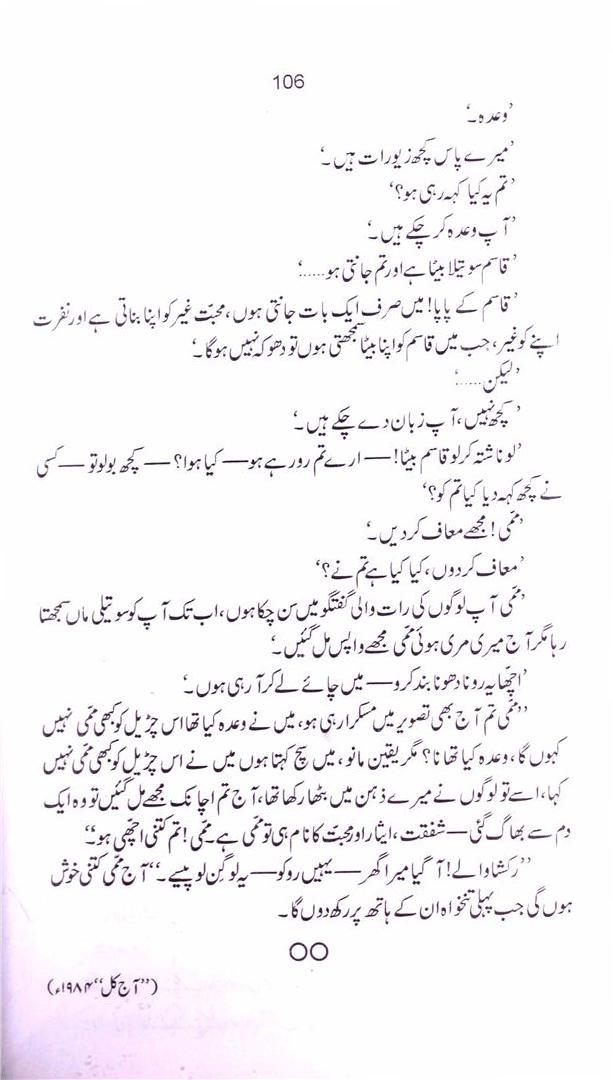 106
’وعدہ۔‘
’میرے پاس کچھ زیورات ہیں۔‘
’تم یہ کیا کہہ رہی ہو؟‘
’آپ وعدہ کر چکے ہیں۔‘
’قاسم سوتیلا بیٹا ہے اور تم جانتی ہو.....‘
’قاسم کے پاپا! میں صرف ایک بات جانتی ہوں، محبّت غیر کو اپنا بناتی ہے اور نفرت
اپنے کو غیر، جب میں قاسم کو اپنا بیٹا سمجھتی ہوں تو دھوکہ نہیں ہوگا۔‘
’لیکن.....‘
’کچھ نہیں، آپ زبان دے چکے ہیں۔‘
’لو ناشتہ کرلو قاسم بیٹا! — ارے تم رو رہے ہو — کیا ہوا؟ — کچھ بولو تو — کسی
نے کچھ کہہ دیا کیا تم کو؟‘
’ممّی! مجھے معاف کر دیں۔‘
’معاف کر دوں، کیا کیا ہے تم نے؟‘
’ممّی آپ لوگوں کی رات والی گفتگو میں سن چکا ہوں، اب تک آپ کو سوتیلی ماں سمجھتا
رہا مگر آج میری مری ہوئی ممّی مجھے واپس مل گئیں۔‘
’اچھّا یہ رونا دھونا بند کرو — میں چائے لے کر آ رہی ہوں۔‘
’’ممّی تم آج بھی تصویر میں مسکرا رہی ہو، میں نے وعدہ کیا تھا اس چڑیل کو کبھی ممّی نہیں
کہوں گا، وعدہ کیا تھا نا؟ مگر یقین مانو، میں سچ کہتا ہوں میں نے اس چڑیل کو کبھی ممّی نہیں
کہا، اسے تو لوگوں نے میرے ذہن میں بٹھا رکھا تھا، آج تم اچانک مجھے مل گئیں تو وہ ایک
دم سے بھاگ گئی — شفقت، ایثار اور محبّت کا نام ہی تو ممّی ہے۔ ممّی! تم کتنی اچھّی ہو۔‘‘
’’رکشا والے! آ گیا میرا گھر — یہیں روکو — یہ لو گِن لو پیسے۔‘‘ آج ممّی کتنی خوش
ہوں گی جب پہلی تنخواہ ان کے ہاتھ پر رکھ دوں گا۔
○○
(’’آج کل‘‘ ۱۹۸۴ء)